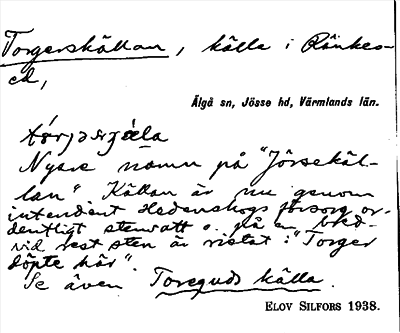 Torgerskällan, källa i Ränkes-
ed,
Älgå sn, Jösse hd, Värmlands län.
Nyare namn på "Jörsekäl-
lan". Källan är nu genom
intendent Hedenskogs försorg or-
dentligt stensatt o. på en bred-
vid rest sten är ristat: "Torger
döpte här".
Se även Toreguds källa.
ELOV SILFORS 1938.